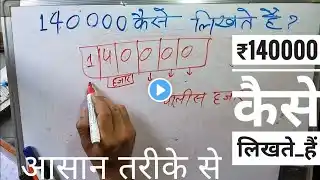 140000 कैसे लिखते है ?
1 4 0 0 0 0
हजार
₹140000
कैसे
लिखते_हैं
आसान तरीके से